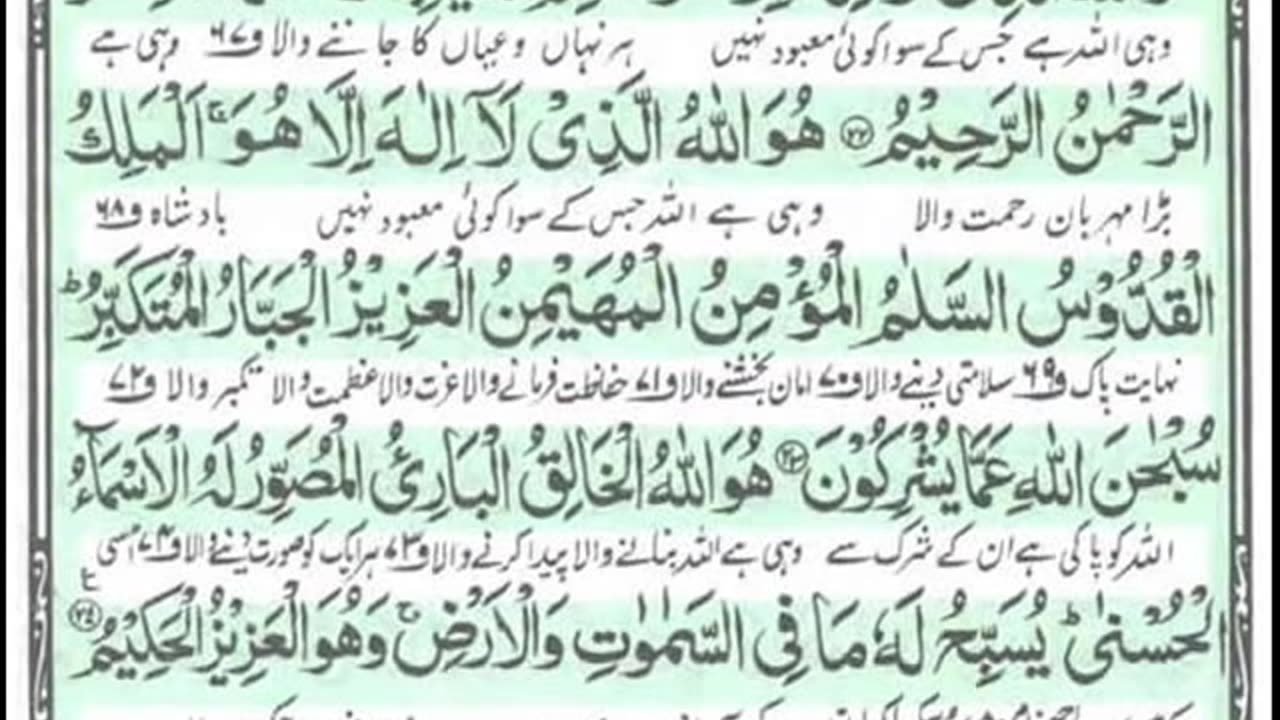 وہی اللہ ہے جس کے سوا کوئی معبود نہیں ہر نہاں و عیاں کا جاننے والا ف۶۷ وہی ہے
الرَّحْمٰنُ الرَّحِيْمُ ۝۲۲ هُوَ اللّٰهُ الَّذِيْ لَاۤ اِلٰهَ اِلَّا هُوَ ۚ اَلْمَلِكُ
بڑا مہربان رحمت والا وہی ہے اللہ جس کے سوا کوئی معبود نہیں بادشاہ ف۶۸
الْقُدُّوْسُ السَّلٰمُ الْمُؤْمِنُ الْمُهَيْمِنُ الْعَزِيْزُ الْجَبَّارُ الْمُتَكَبِّرُ ؕ
نہایت پاک ف۶۹ سلامتی دینے والا ف۷۰ امان بخشنے والا ف۷۱ حفاظت فرمانے والا عزت والا عظمت والا تکبر والا ف۷۲
سُبْحٰنَ اللّٰهِ عَمَّا يُشْرِكُوْنَ ۝۲۳ هُوَ اللّٰهُ الْخَالِقُ الْبَارِئُ الْمُصَوِّرُ لَهُ الْاَسْمَآءُ
اللہ کو پاکی ہے ان کے شرک سے وہی ہے اللہ بنانے والا پیدا کرنے والا ف۷۳ ہر ایک کو صورت دینے والا ف۷۴ اسی
الْحُسْنٰى ؕ يُسَبِّحُ لَهٗ مَا فِي السَّمٰوٰتِ وَالْاَرْضِ ۚ وَهُوَ الْعَزِيْزُ الْحَكِيْمُ ۝۲۴